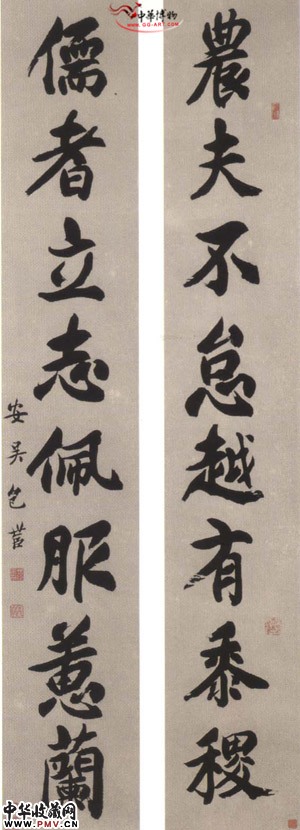 中華博物
www.GG-ART.com
農夫不怠越有黍稷
儒者立志佩服蕙蘭
安吴包
中华收藏网
www.PMV.cn